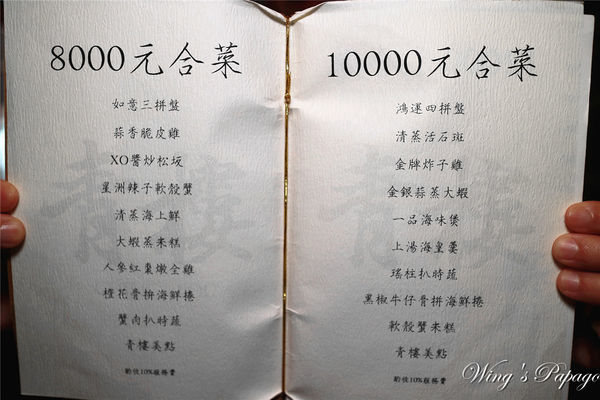 8000元合菜
如意三拼盤
蒜香脆皮雞
XO醬炒松坂
星洲辣子軟殼蟹
清蒸海上鮮
大蝦蒸米糕
人參紅棗燉全雞
橙花骨拚海鮮捲
蟹肉扒時蔬
青樓美點
酌收10%服務費
10000元合菜
鴻運四拼盤
清蒸活石斑
金牌炸子雞
金銀蒜蒸大蝦
一品海味煲
上湯海皇羹
瑤柱扒時蔬
黑椒牛仔骨拼海鮮捲
軟殼蟹米糕
青樓美點
酌收10%服務費
青樓
青樓
Wing's Papago